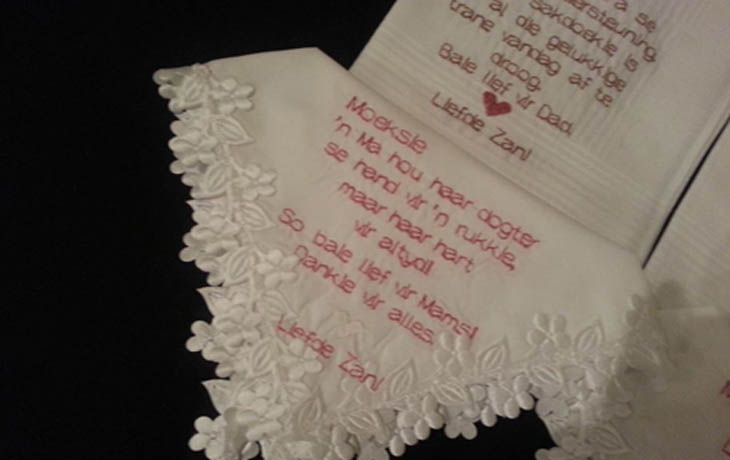 a se
ersteuning.
sakdoekie is
al die gelukkige
trane vandag af te
droog.
Baie lief vir Dad.
Liefde Zani
Moeksie
'n Ma hou haar dogter
se hand vir 'n rukkie,
maar haar hart
vir altyd!
So baie lief vir Mams!
Dankie vir alles.
Liefde Zani